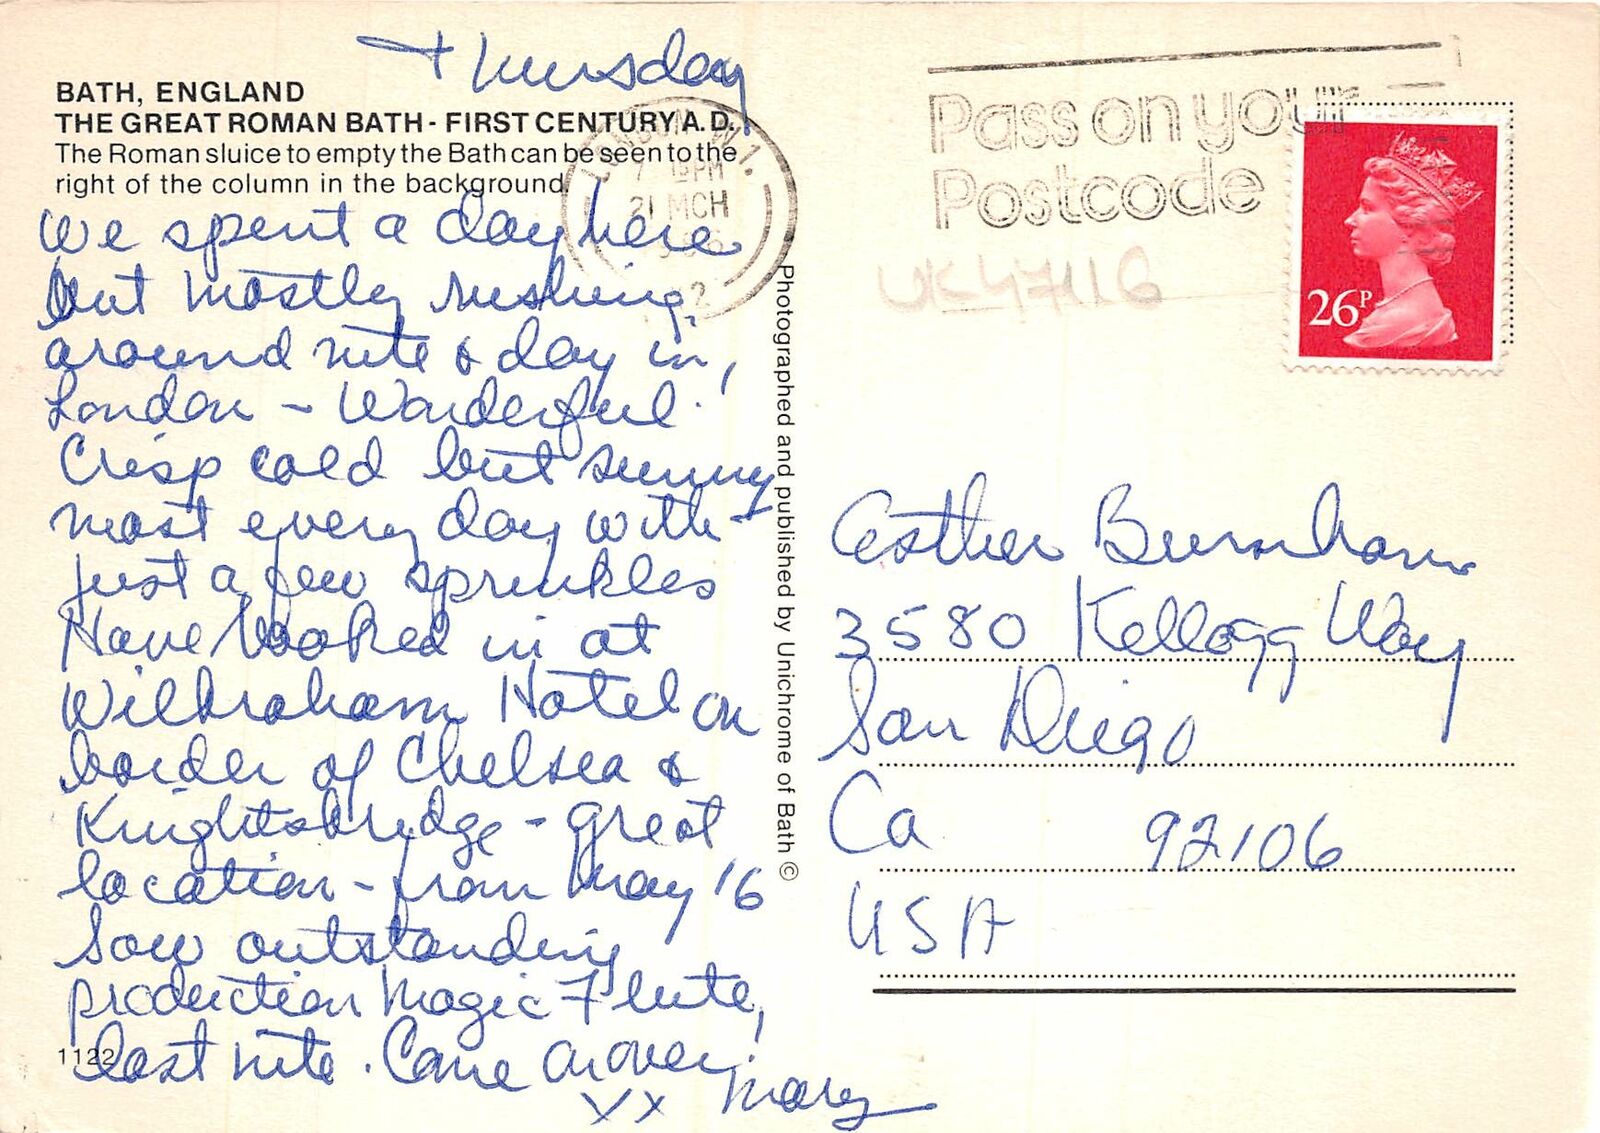 Thursday
BATH, ENGLAND
THE GREAT ROMAN BATH - FIRST CENTURY A.D.
The Roman sluice to empty the Bath can be seen to the
right of the column in the background.
We spent a day here
but mostly rushing
around nite & day in
London - Wonderful.
Crisp cold but sunny
most every day with
just a few sprinkles
Have booked in at
Wilbraham Hotel on
border of Chelsea &
Knightsbridge - great
location - from May 16
Saw outstanding
production Magic Flute
last nite. Come on over!
xx Mary
1122
Photographed and published by Unichrome of Bath ©
LONDON W1.
PM
21 MCH
2
Pass on your
Postcode
26P
UK47116
Esther Burnham
3580 Kellogg Way
San Diego
Ca 92106
USA